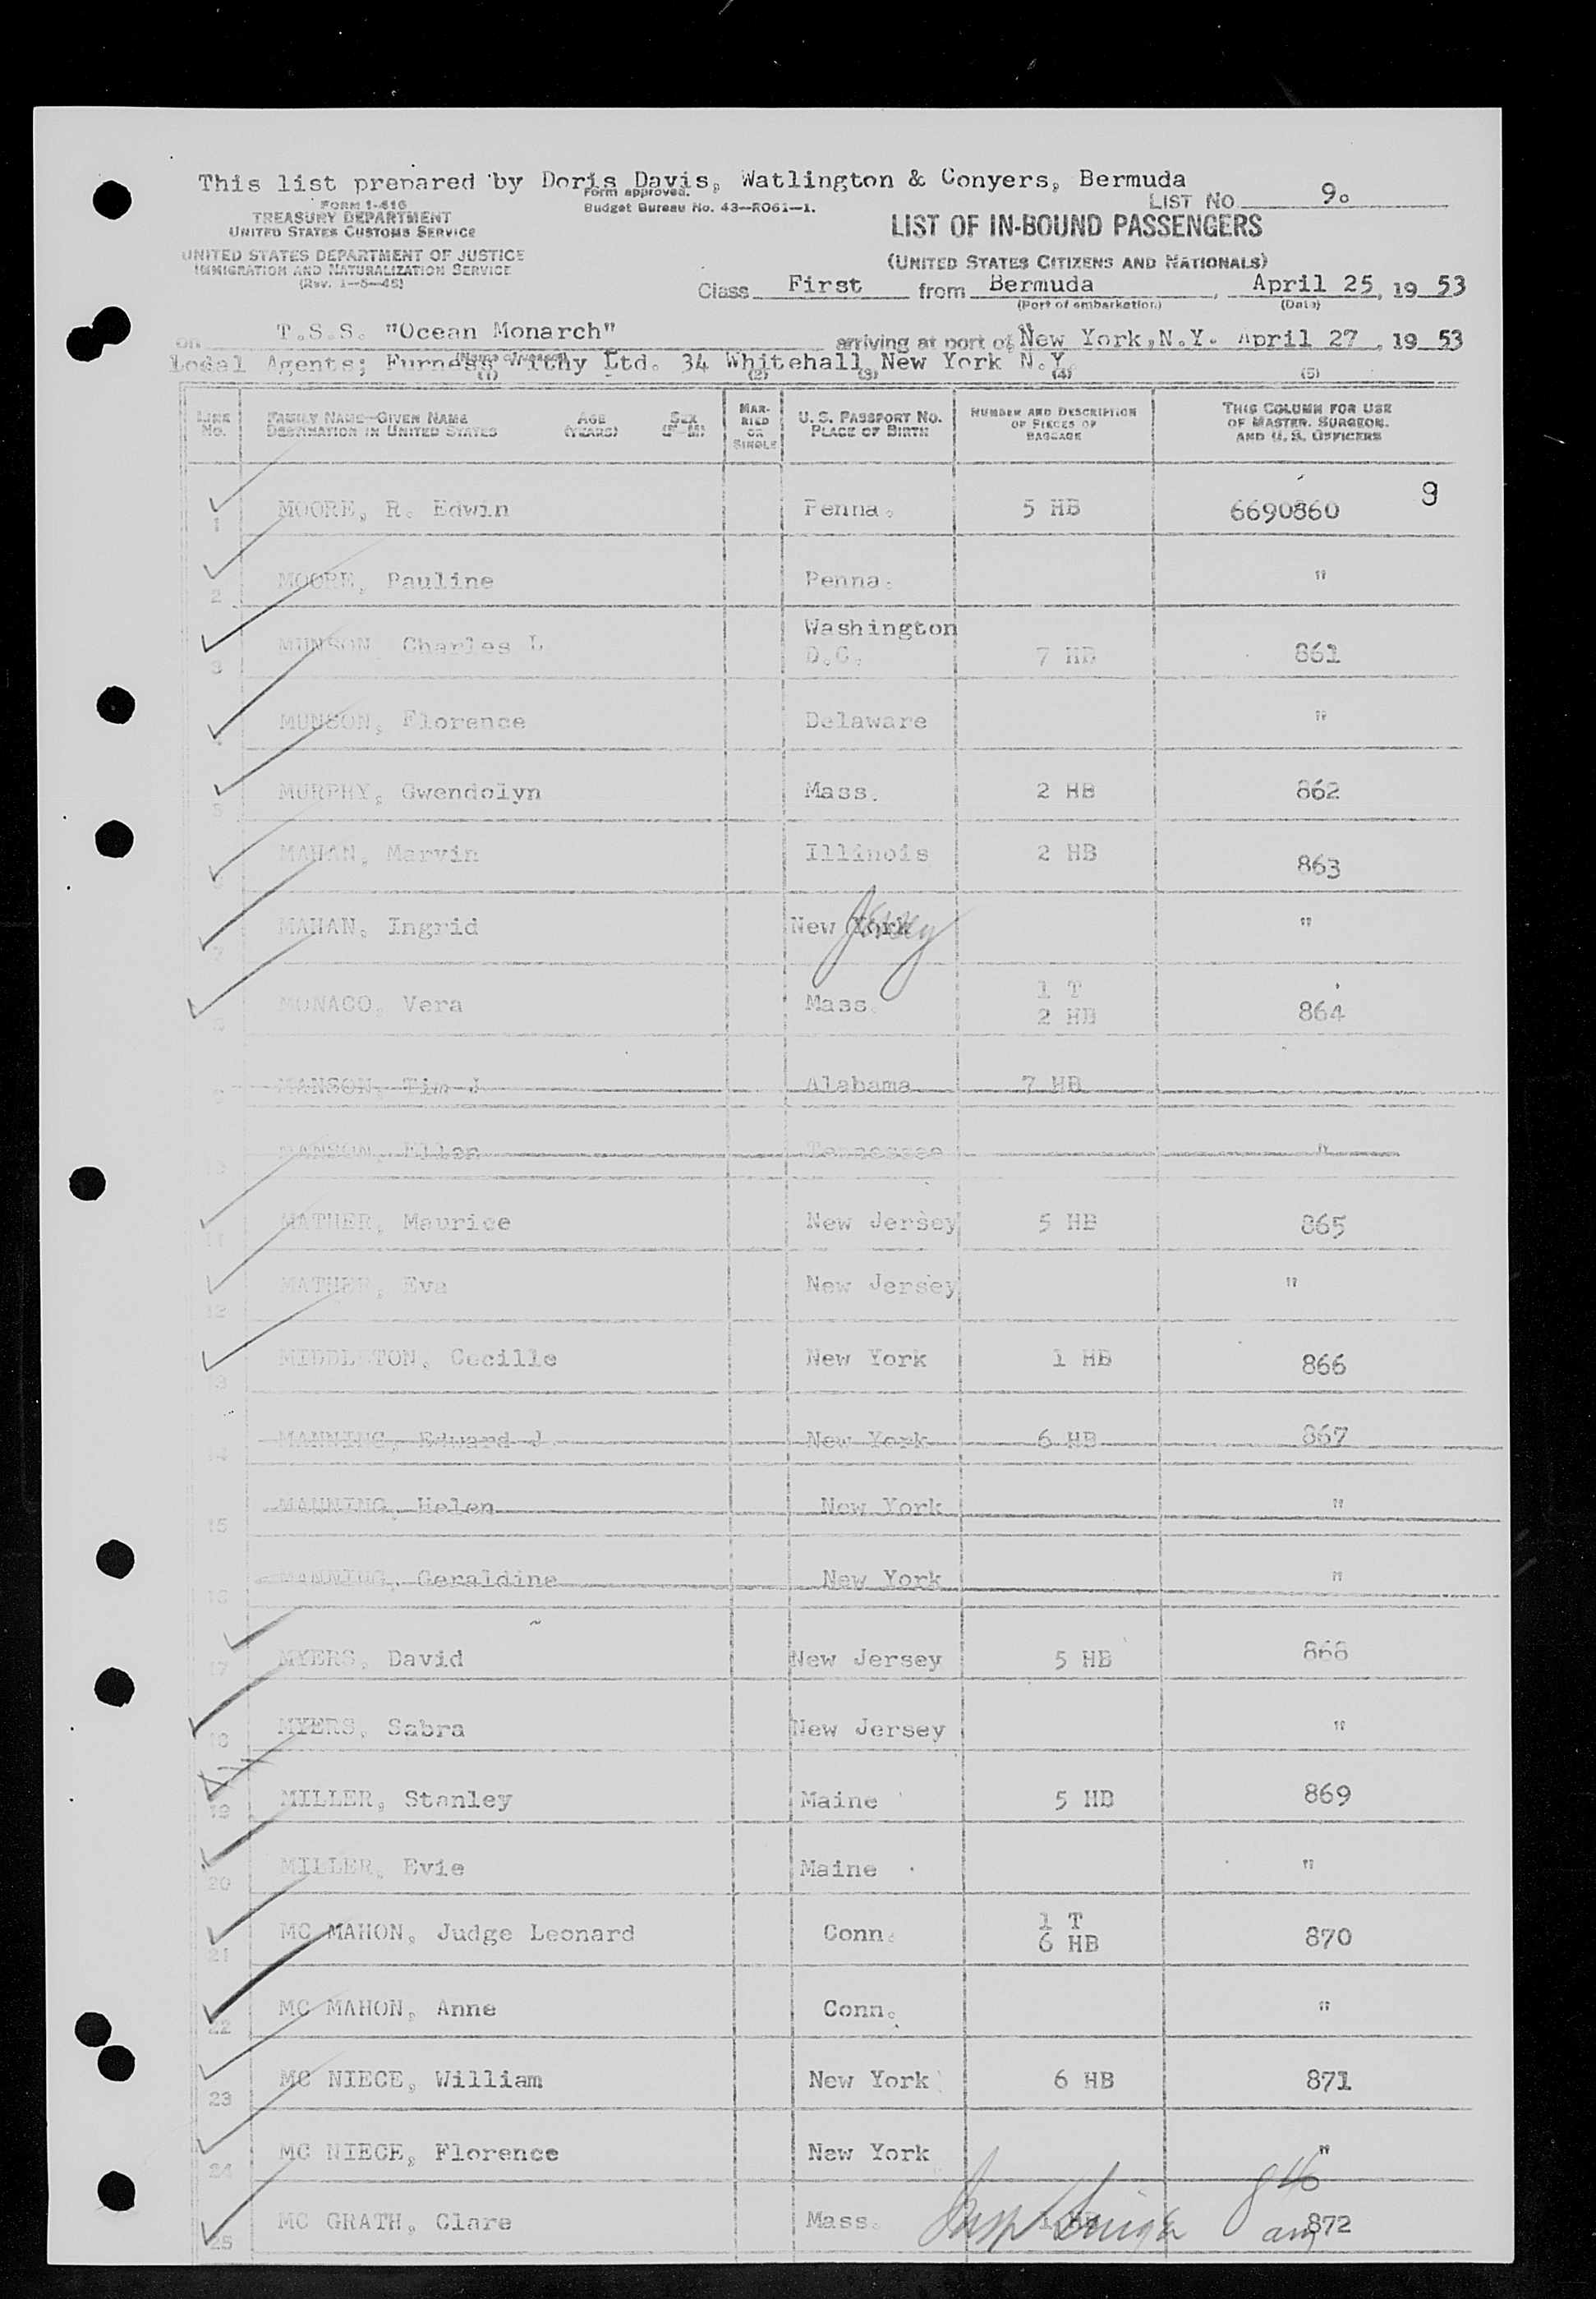 This list prepared by Doris Davis, Watlington & Conyers, Bermuda
Form approved.
Budget Bureau No. 43—R061—1.
LIST NO 9.
FORM I-416
TREASURY DEPARTMENT
UNITED STATES CUSTOMS SERVICE
UNITED STATES DEPARTMENT OF JUSTICE
IMMIGRATION AND NATURALIZATION SERVICE
(Rev. 1—5—45)
LIST OF IN-BOUND PASSENGERS
(UNITED STATES CITIZENS AND NATIONALS)
Class First from Bermuda, April 25, 19 53
(Port of embarkation) (Date)
on T.S.S. "Ocean Monarch" arriving at port of New York, N.Y. April 27, 19 53
(Name of vessel)
Local Agents; Furness Withy Ltd. 34 Whitehall New York N.Y.
(1) (2) (3) (4) (5)
LINE No. FAMILY NAME—GIVEN NAME DESTINATION IN UNITED STATES AGE (YEARS) SEX (F—M) MARRIED OR SINGLE U. S. PASSPORT NO. PLACE OF BIRTH NUMBER AND DESCRIPTION OF PIECES OF BAGGAGE THIS COLUMN FOR USE OF MASTER, SURGEON, AND U. S. OFFICERS
1 MOORE, R. Edwin Penna. 5 HB 6690860 9
2 MOORE, Pauline Penna. "
3 MUNSON Charles L Washington D.C. 7 HB 861
4 MUNSON, Florence Delaware "
5 MURPHY, Gwendolyn Mass. 2 HB 862
6 MAHAN, Marvin Illinois 2 HB 863
7 MAHAN. Ingrid New York Jersey "
8 MONACO. Vera Mass. 1 T 2 HB 864
9 MANSON, Tim J Alabama 7 HB
10 MANSON, Ellen Tennessee "
11 MATHER, Maurice New Jersey 5 HB 865
12 MATHER, Eva New Jersey "
13 MIDDLETON, Cecille New York 1 HB 866
14 MANNING, Edward J New York 6 HB 867
15 MANNING, Helen New York "
16 MANNING, Geraldine New York "
17 MYERS, David New Jersey 5 HB 868
18 MYERS, Sabra New Jersey "
19 MILLER, Stanley Maine 5 HB 869
20 MILLER, Evie Maine "
21 MC MAHON, Judge Leonard Conn. 1 T 6 HB 870
22 MC MAHON, Anne Conn. "
23 MC NIECE, William New York 6 HB 871
24 MC NIECE, Florence New York "
25 MC GRATH, Clare Mass. 872